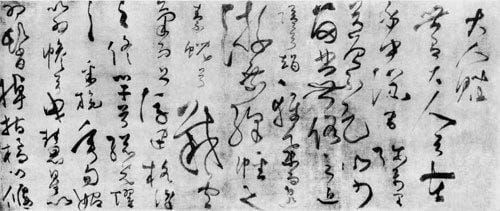 大人賦
世有大人兮在
乎中州宅彌萬里
兮曾不足以少
留悲世俗之迫
隘兮朅輕舉而遠
遊垂絳幡之
素蜺兮載雲
氣而上浮建格澤
之修竿兮總光耀
之采旄垂旬始
以為幓兮曳彗星而
為髾掉指橋以偃